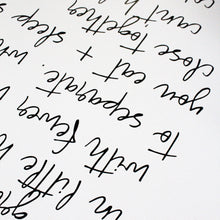 in little
with fewer
to separate.
you eat + sleep
close together
can't